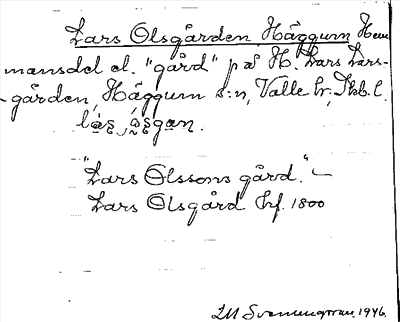 Lars Olsgården, Häggum Hem
mansdel el. "gård" på H. Lars Lars-
gården, Häggum s:n, Valle hr, Skb. l.
"Lars Olssons gård."
Lars Olsgård hf. 1800
1946.